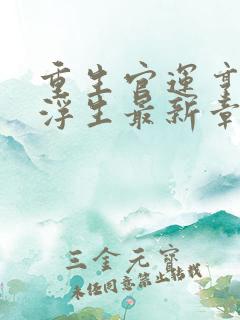 重生官運
浮生最新章
三金元寶
未經同意禁止轉載